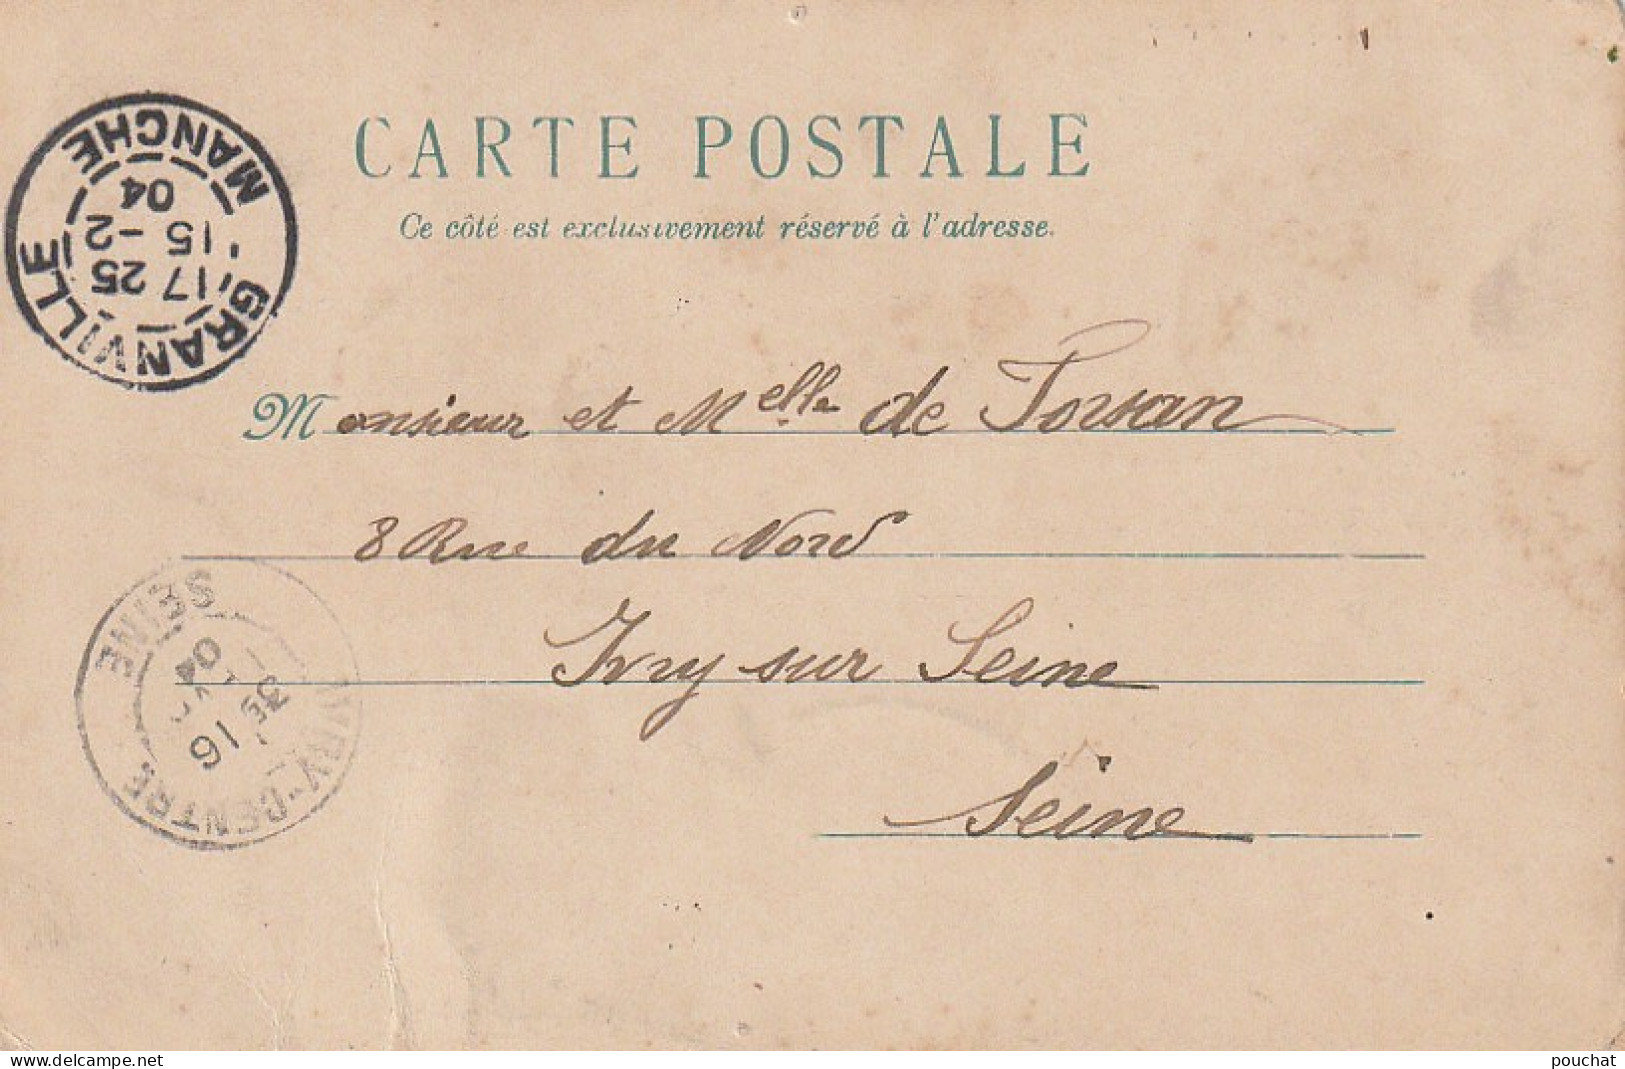 CARTE POSTALE
Ce côté est exclusivement réservé à l'adresse.
GRANVILLE
MANCHE
17 25
15 -2
04
Monsieur et Melle de Porsan
8 Rue du Nord
Ivry sur Seine
Seine
IVRY-CENTRE
SEINE
16
04
www.delcampe.net
pouchat